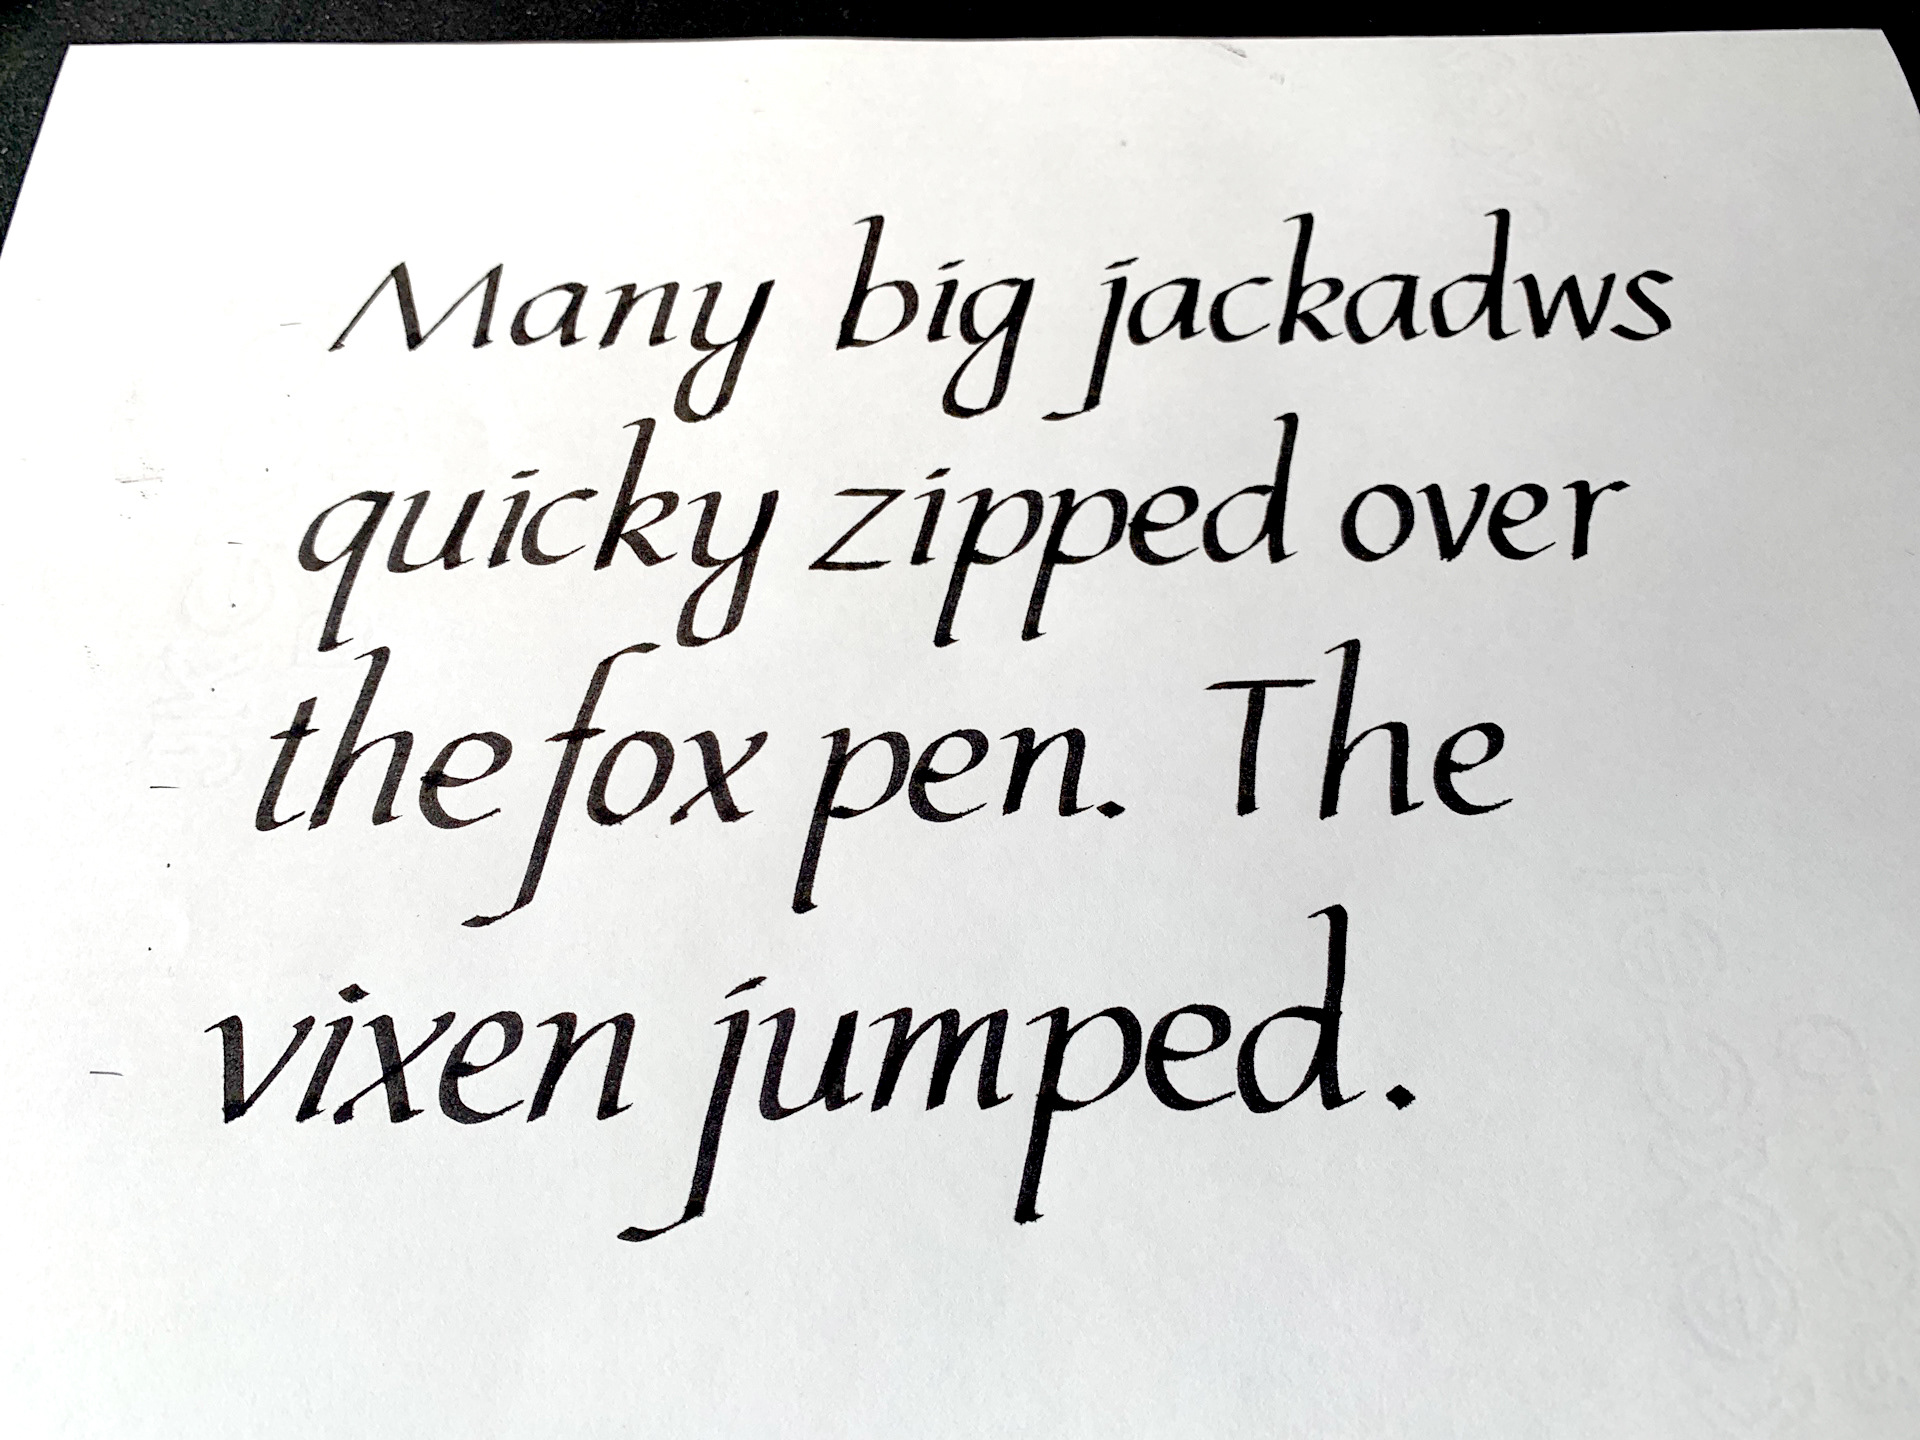 Many big jackadws
quicky zipped over
the fox pen. The
vixen jumped.